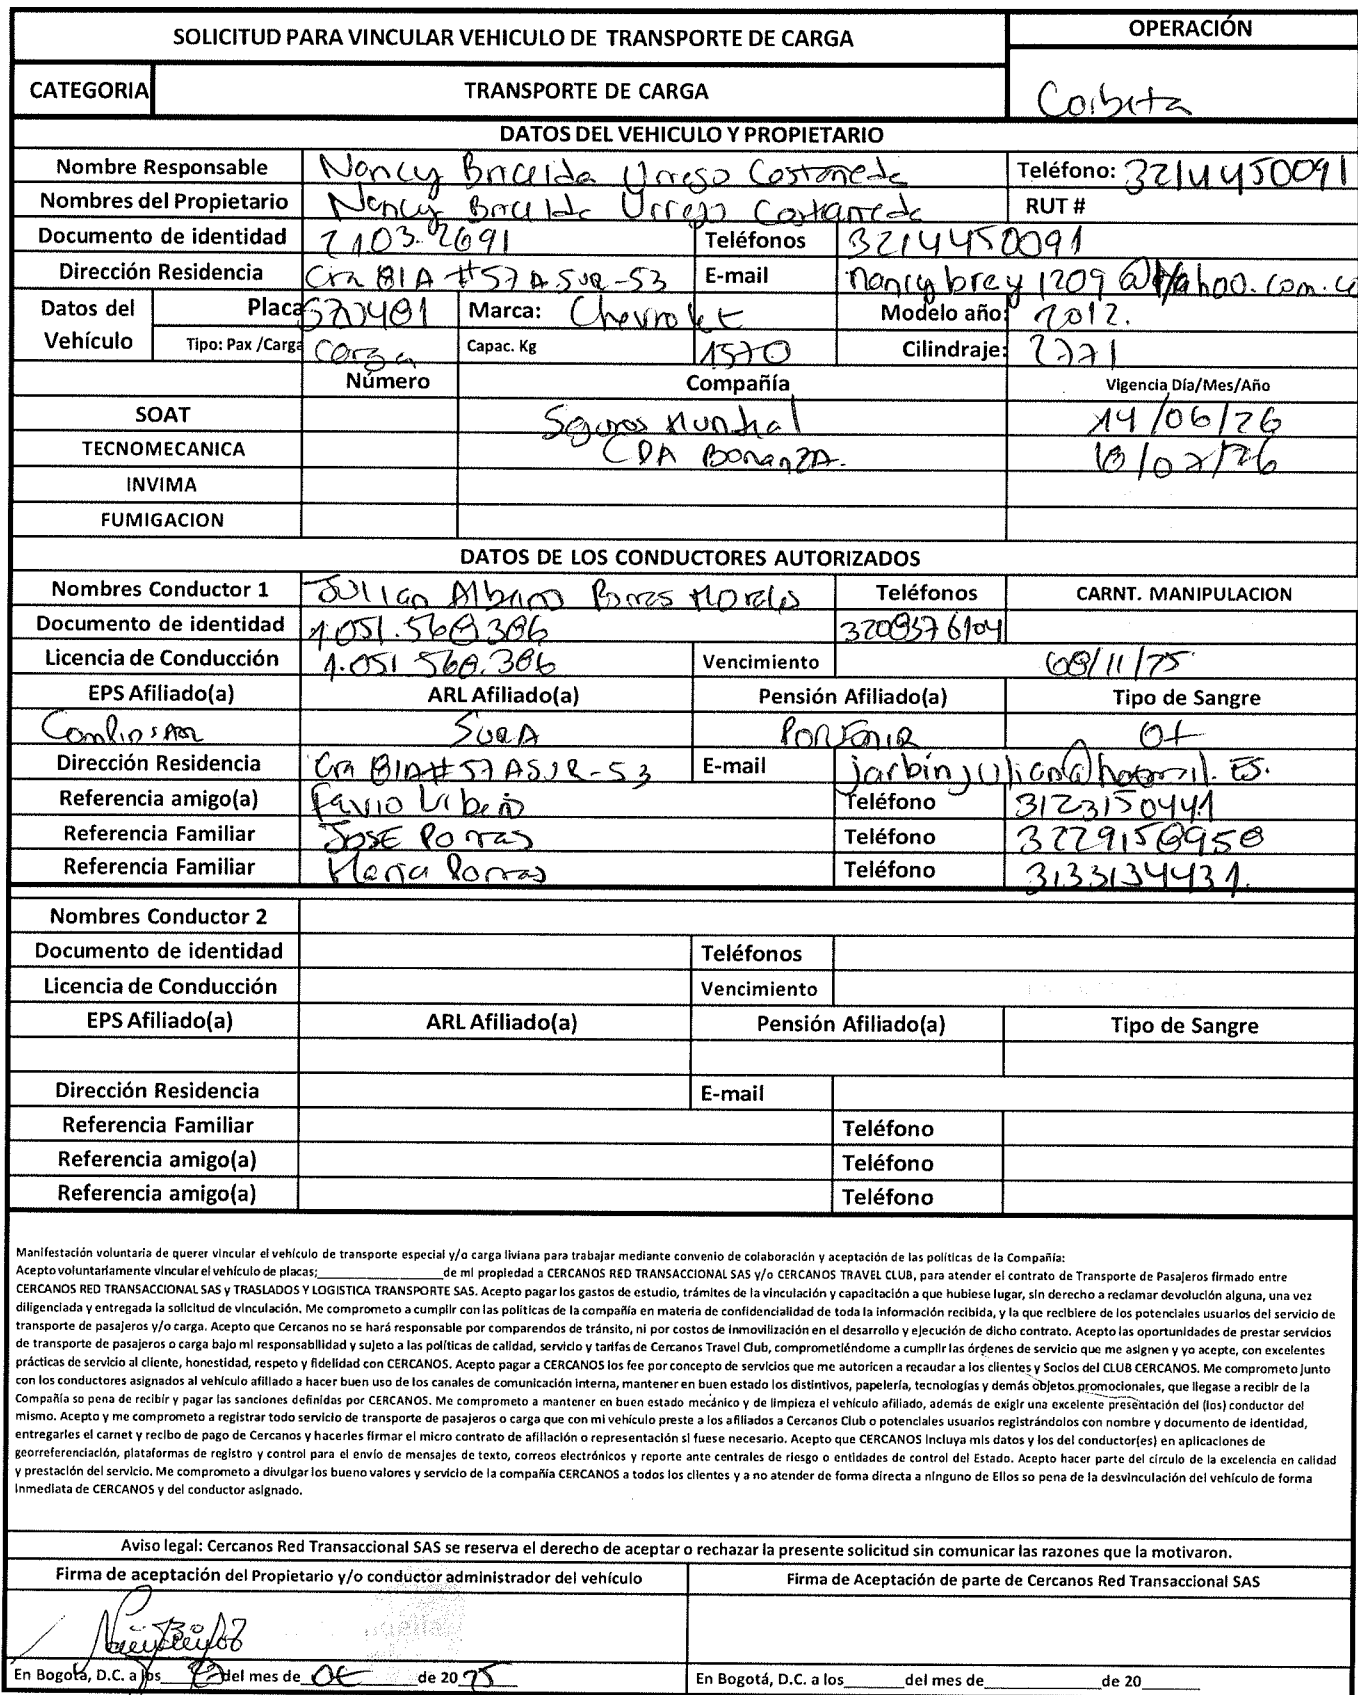 SOLICITUD PARA VINCULAR VEHICULO DE TRANSPORTE DE CARGA
OPERACIÓN
CATEGORIA TRANSPORTE DE CARGA
DATOS DEL VEHICULO Y PROPIETARIO
Nombre Responsable Nancy Briceida Urrego Costaneda Teléfono: 3214450091
Nombres del Propietario Nancy Briceida Urrego Costaneda RUT #
Documento de identidad Teléfonos 3214450091
Dirección Residencia Cra 81A #57A SUR-53 E-mail nancybrey1209@yahoo.com.co
Datos del Vehículo Placa Marca: Chevrolet Modelo año: 2012.
Tipo: Pax /Carga Carga Capac. Kg 1570 Cilindraje: 2771
Número Compañía Vigencia Día/Mes/Año
SOAT Seguros Mundial 14/06/26
TECNOMECANICA CDA BonanzA.
INVIMA
FUMIGACION
DATOS DE LOS CONDUCTORES AUTORIZADOS
Nombres Conductor 1 Julian Porras Morales Teléfonos CARNT. MANIPULACION
Documento de identidad 1.051.568.386 3208576104
Licencia de Conducción 1.051.568.386 Vencimiento 08/11/25
EPS Afiliado(a) ARL Afiliado(a) Pensión Afiliado(a) Tipo de Sangre
SURA PORVENIR O+
Dirección Residencia Cra 81A #57 ASUR-53 E-mail
Referencia amigo(a) Favio Teléfono 3123150441
Referencia Familiar JOSE Porras Teléfono 3229158958
Referencia Familiar Maria Porras Teléfono 3133134431.
Nombres Conductor 2
Documento de identidad Teléfonos
Licencia de Conducción Vencimiento
EPS Afiliado(a) ARL Afiliado(a) Pensión Afiliado(a) Tipo de Sangre
Dirección Residencia E-mail
Referencia Familiar Teléfono
Referencia amigo(a) Teléfono
Referencia amigo(a) Teléfono
Manifestación voluntaria de querer vincular el vehículo de transporte especial y/o carga liviana para trabajar mediante convenio de colaboración y aceptación de las políticas de la Compañía:
Acepto voluntariamente vincular el vehículo de placas;____________________de mi propiedad a CERCANOS RED TRANSACCIONAL SAS y/o CERCANOS TRAVEL CLUB, para atender el contrato de Transporte de Pasajeros firmado entre
CERCANOS RED TRANSACCIONAL SAS y TRASLADOS Y LOGISTICA TRANSPORTE SAS. Acepto pagar los gastos de estudio, trámites de la vinculación y capacitación a que hubiese lugar, sin derecho a reclamar devolución alguna, una vez
diligenciada y entregada la solicitud de vinculación. Me comprometo a cumplir con las políticas de la compañía en materia de confidencialidad de toda la información recibida, y la que recibiere de los potenciales usuarios del servicio de
transporte de pasajeros y/o carga. Acepto que Cercanos no se hará responsable por comparendos de tránsito, ni por costos de inmovilización en el desarrollo y ejecución de dicho contrato. Acepto las oportunidades de prestar servicios
de transporte de pasajeros o carga bajo mi responsabilidad y sujeto a las políticas de calidad, servicio y tarifas de Cercanos Travel Club, comprometiéndome a cumplir las órdenes de servicio que me asignen y yo acepte, con excelentes
prácticas de servicio al cliente, honestidad, respeto y fidelidad con CERCANOS. Acepto pagar a CERCANOS los fee por concepto de servicios que me autoricen a recaudar a los clientes y Socios del CLUB CERCANOS. Me comprometo junto
con los conductores asignados al vehículo afiliado a hacer buen uso de los canales de comunicación interna, mantener en buen estado los distintivos, papelería, tecnologías y demás objetos promocionales, que llegase a recibir de la
Compañía so pena de recibir y pagar las sanciones definidas por CERCANOS. Me comprometo a mantener en buen estado mecánico y de limpieza el vehículo afiliado, además de exigir una excelente presentación del (los) conductor del
mismo. Acepto y me comprometo a registrar todo servicio de transporte de pasajeros o carga que con mi vehículo preste a los afiliados a Cercanos Club o potenciales usuarios registrándolos con nombre y documento de identidad,
entregarles el carnet y recibo de pago de Cercanos y hacerles firmar el micro contrato de afiliación o representación si fuese necesario. Acepto que CERCANOS incluya mis datos y los del conductor(es) en aplicaciones de
georreferenciación, plataformas de registro y control para el envío de mensajes de texto, correos electrónicos y reporte ante centrales de riesgo o entidades de control del Estado. Acepto hacer parte del círculo de la excelencia en calidad
y prestación del servicio. Me comprometo a divulgar los bueno valores y servicio de la compañía CERCANOS a todos los clientes y a no atender de forma directa a ninguno de Ellos so pena de la desvinculación del vehículo de forma
inmediata de CERCANOS y del conductor asignado.
Aviso legal: Cercanos Red Transaccional SAS se reserva el derecho de aceptar o rechazar la presente solicitud sin comunicar las razones que la motivaron.
Firma de aceptación del Propietario y/o conductor administrador del vehículo Firma de Aceptación de parte de Cercanos Red Transaccional SAS
En Bogotá, D.C. a los del mes de de 20 25 En Bogotá, D.C. a los______del mes de____________de 20____